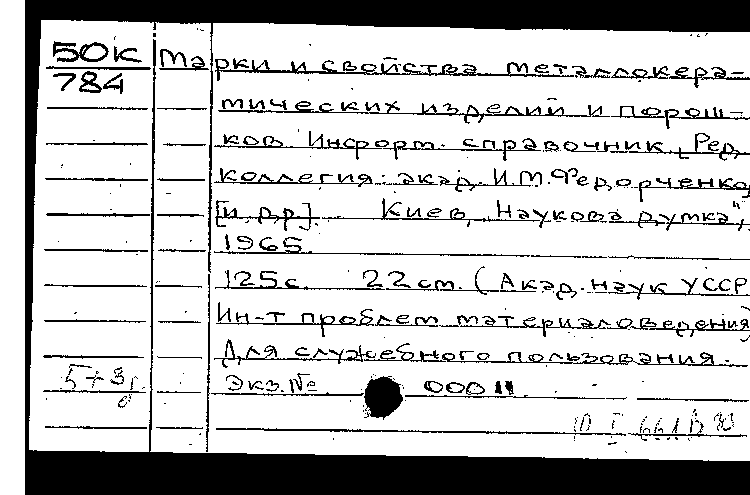 50К Марки и свойства металлокера-
784
мических изделий и порош-
ков. Информ. справочник. [Ред.
коллегия: акад. И.М. Федорченко
[и др.]. Киев, "Наукова думка",
1965.
125с. 22 cm. (Акад. наук УССР
Ин-т проблем материаловедения)
Для служебного пользования.
Экз. № 00011.